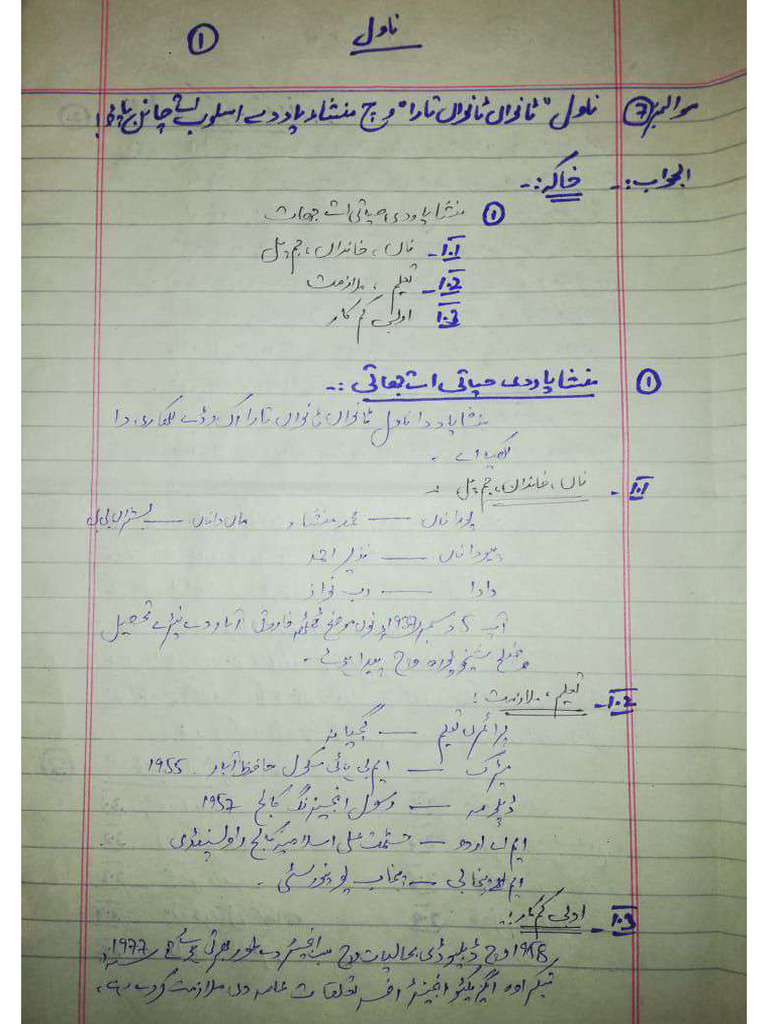 ناول
①
سوال نمبر ⑦ ناول "ٹانواں ٹانواں تارا" وچ منشا یاد دے اسلوب اتے چانن پاؤ!
الجواب:- خاکہ:-
① منشا یاد دی حیاتی ات جھات
1.1- ناں، خاندان، جم پل
1.2- تعلیم، ملازمت
1.3 ادبی کم کار
① منشا یاد دی حیاتی ات جھاتی:-
منشا یاد دا ناول ٹانواں ٹانواں تارا اک وڈے لکھاری دا
لکھیا اے۔
1.1- ناں، خاندان، جم پل۔
پورا ناں — محمد منشاء ماں دا ناں — بشیراں بی بی
پیو دا ناں — نذیر احمد
دادا — رب نواز
آپ 5 دسمبر 1937ء نوں موضع ٹھٹھہ فاروق آباد دے نیڑے تحصیل
ضلع شیخوپورہ وچ پیدا ہوئے۔
1.2- تعلیم، ملازمت:
پرائمری تعلیم — گجیانہ
میٹرک — ایم بی ہائی سکول حافظ آباد 1955
ڈپلومہ — رسول انجینئرنگ کالج 1957
ایم اے اردو — حشمت علی اسلامیہ کالج راولپنڈی
ایم اے پنجابی — پنجاب یونیورسٹی۔
1.3- ادبی کم کار:
1958 وچ ڈبلیو ڈی بحالیات وچ سب انجینئر دے طور بھرتی ہو گئے 1977ء
تیکر اوہ ایگزیکٹو انجینئر افسر تعلقات عامہ دی ملازمت کردے رہے،